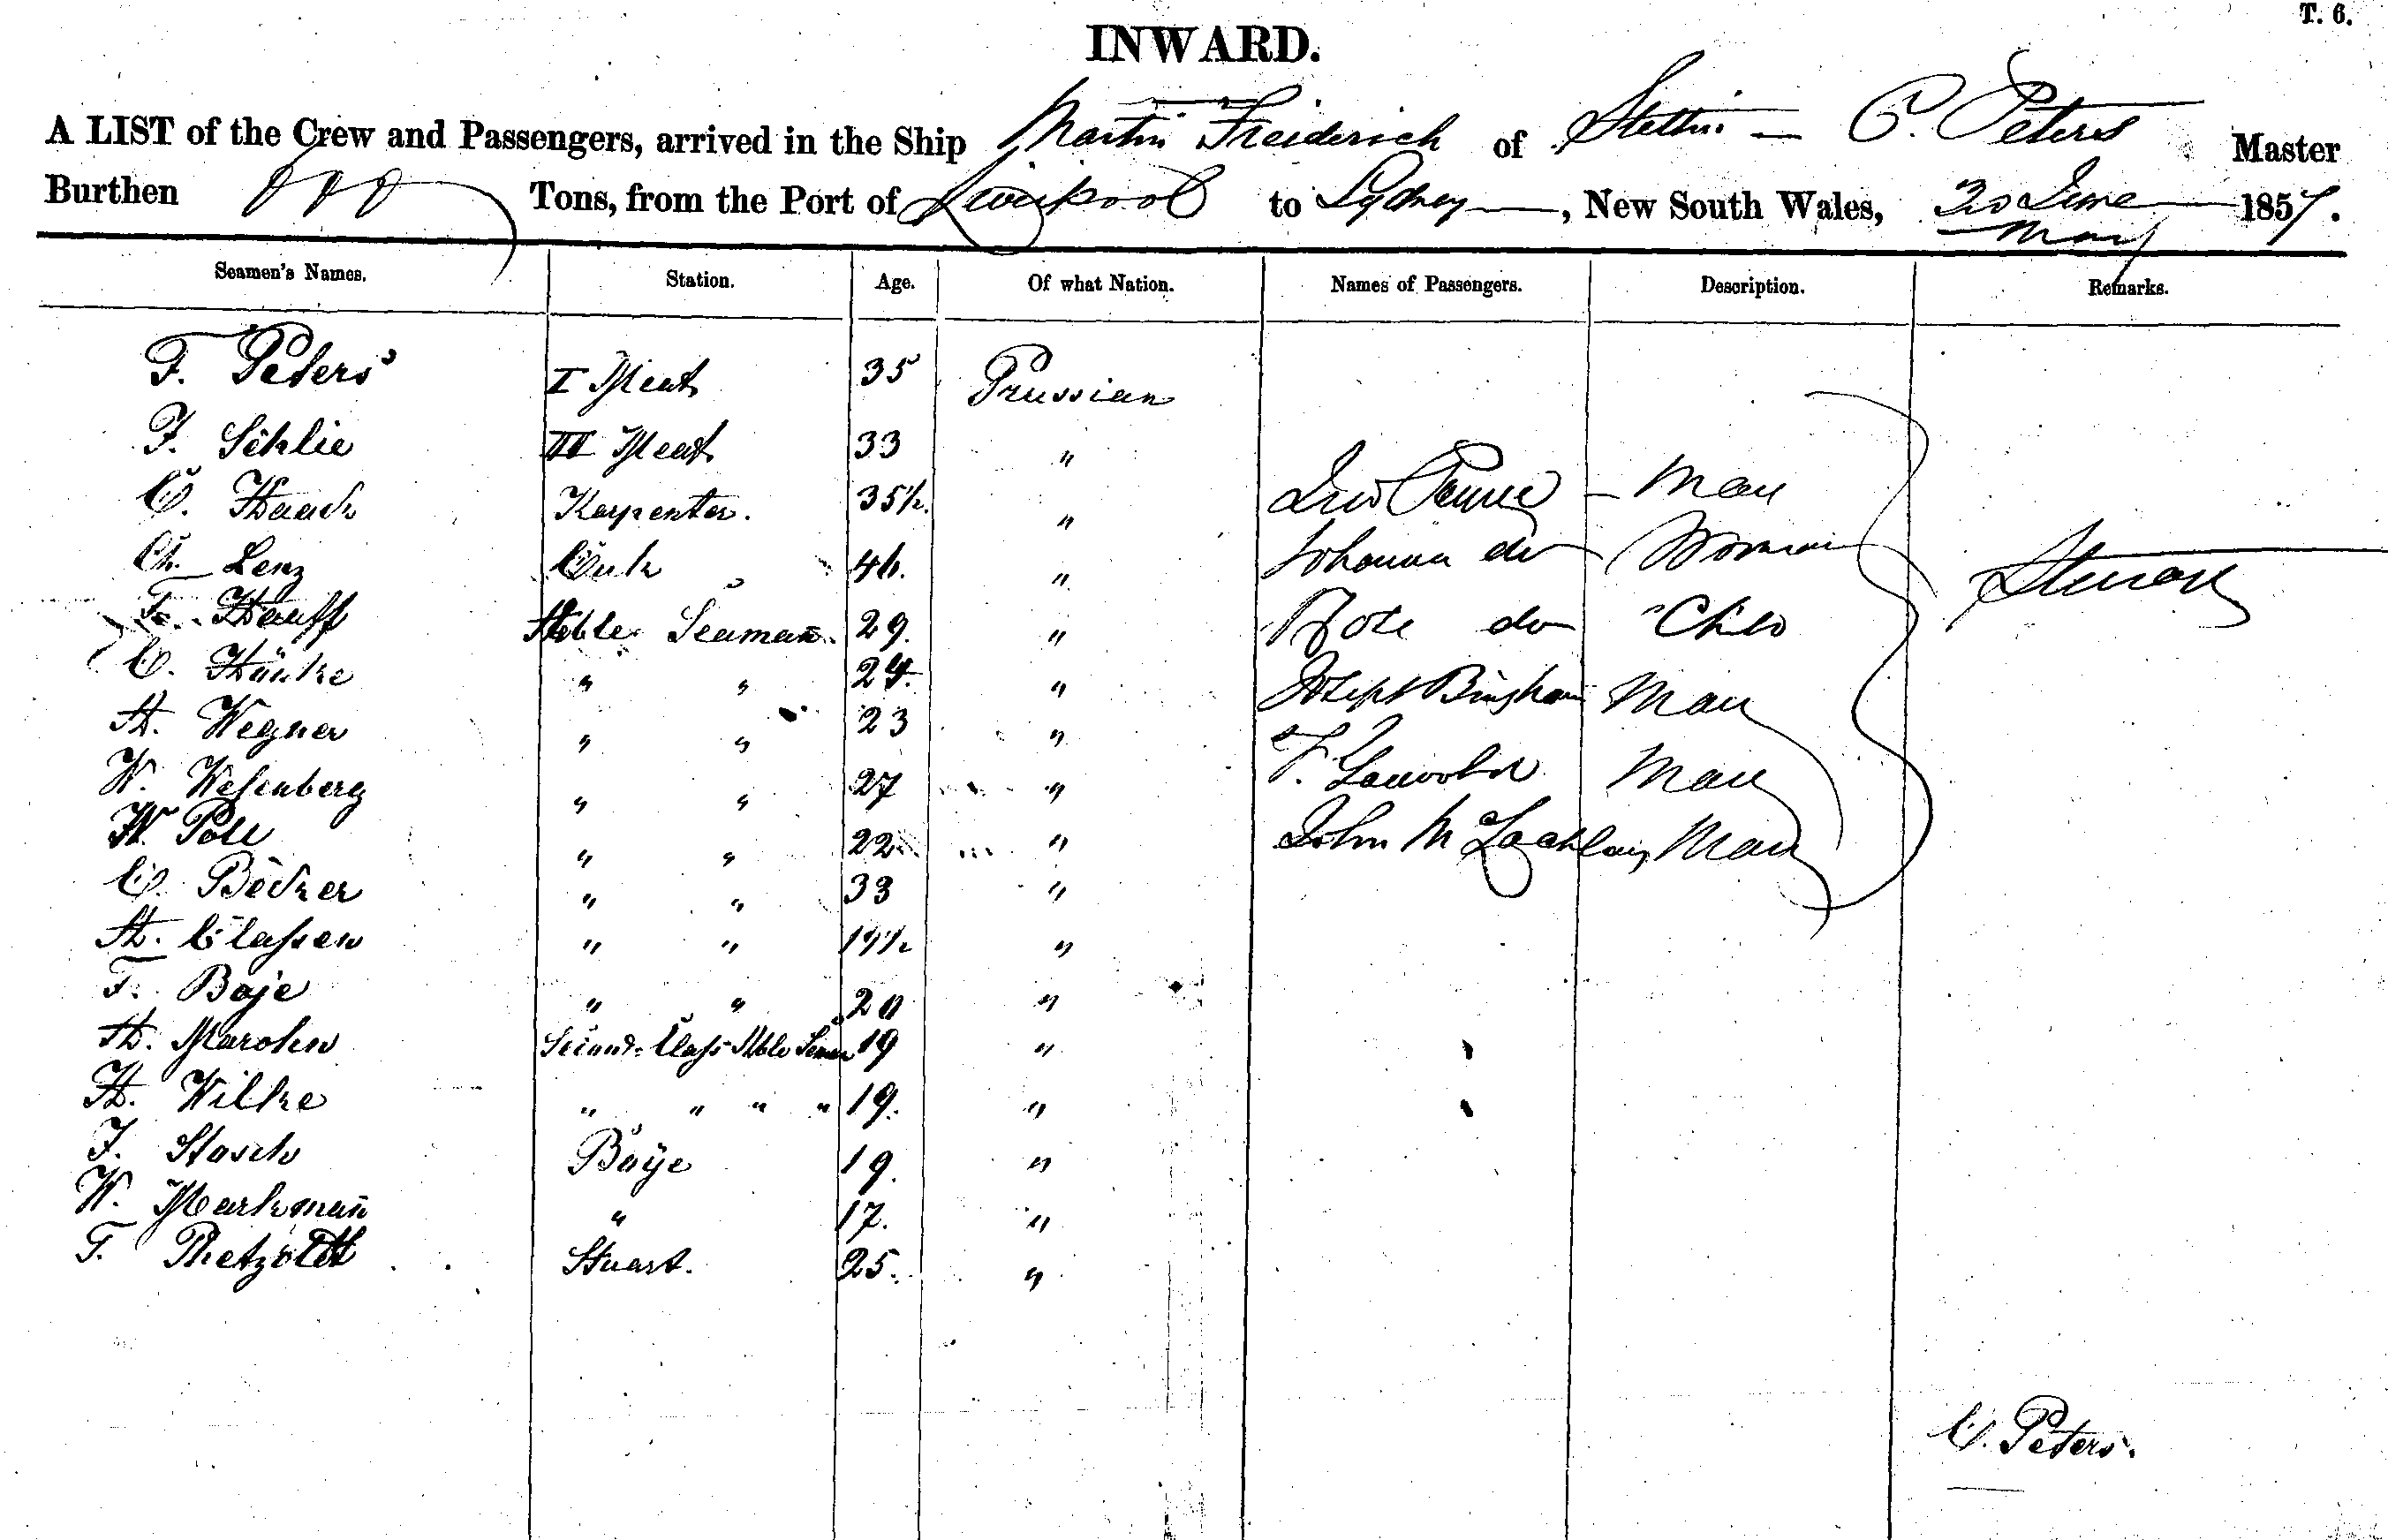 T. 6.
INWARD.
A LIST of the Crew and Passengers, arrived in the Ship Martin Freiderich of Stettin — C. Peters Master
Burthen Tons, from the Port of Liverpool to Sydney —, New South Wales, 20 June 1857.
May
Seamen's Names. Station. Age. Of what Nation. Names of Passengers. Description. Remarks.
F. Peters I Meat 35 Prussian
F. Schlie III Meat 33 "
C. Haack Karpenter. 35 1/2. " Man
Ch. Lenz Cuk 46. " Johanna do Woman
F. Hauff Able Seaman 29. " Rose do Child
C. Hänke " " 24. " Joseph Bingham Man
A. Wegner " " 23 " F. Man
W. Wesenberg " " 27 " John McLachlan Man
W. Poll " " 22 "
C. Becker " " 33 "
A. Classen " " 19 1/2 "
F. Boje " " 20 "
A. Marohn Second Class Able Seman 19 "
A. Wilke " " " " 19. "
F. Stasch Boÿe 19. "
W. Markmañ " 17. "
F. Stuart. 25. "
C. Peters.